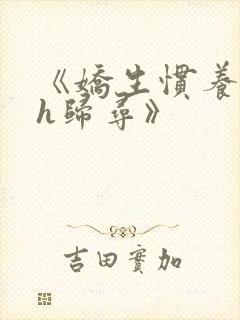 《嬌生慣養
h歸尋》
吉田實加